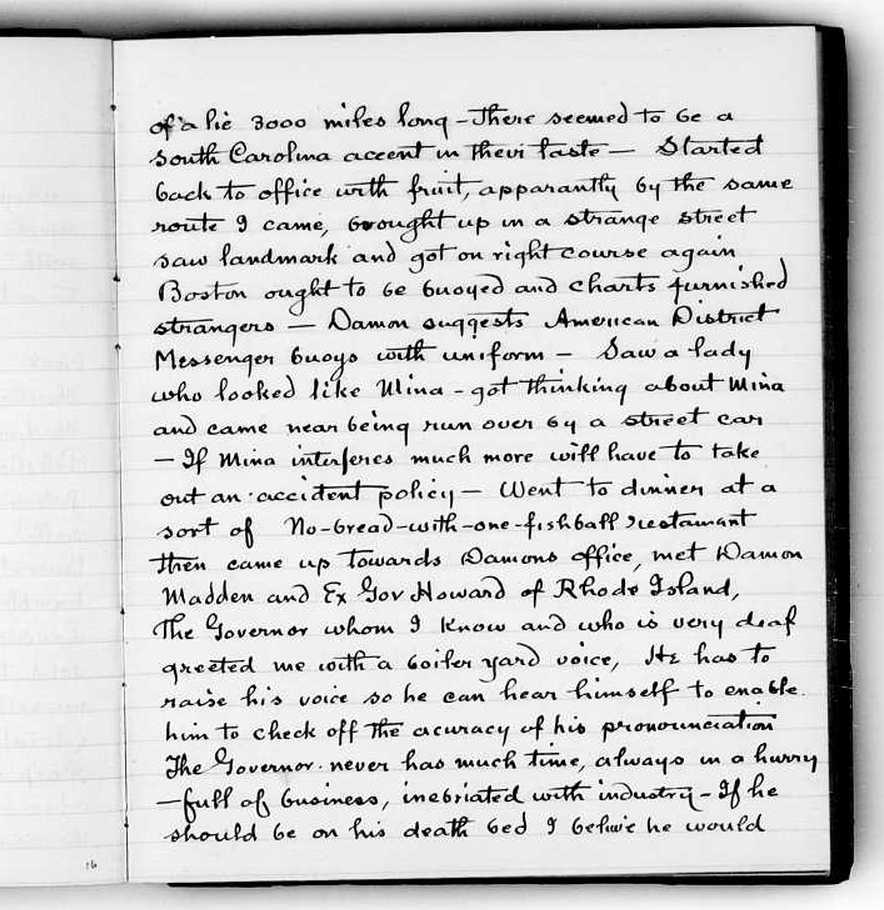 of a lie 3000 miles long – There seemed to be a
South Carolina accent in their taste — Started
back to office with fruit, apparantly by the same
route I came, brought up in a strange street
saw landmark and got on right course again
Boston ought to be buoyed and charts furnished
strangers — Damon suggests American District
Messenger buoys with uniform — Saw a lady
who looked like Mina – got thinking about Mina
and came near being run over by a street car
— If Mina interferes much more will have to take
out an accident policy — Went to dinner at a
sort of No-bread-with-one-fishball restaurant
then came up towards Damons office, met Damon
Madden and Ex Gov Howard of Rhode Island,
The Governor whom I know and who is very deaf
greeted me with a boiler yard voice, He has to
raise his voice so he can hear himself to enable
him to check off the acuracy of his pronounciation
The Governor never has much time, always in a hurry
— full of business, inebriated with industry – If he
should be on his death bed I believe he would
16